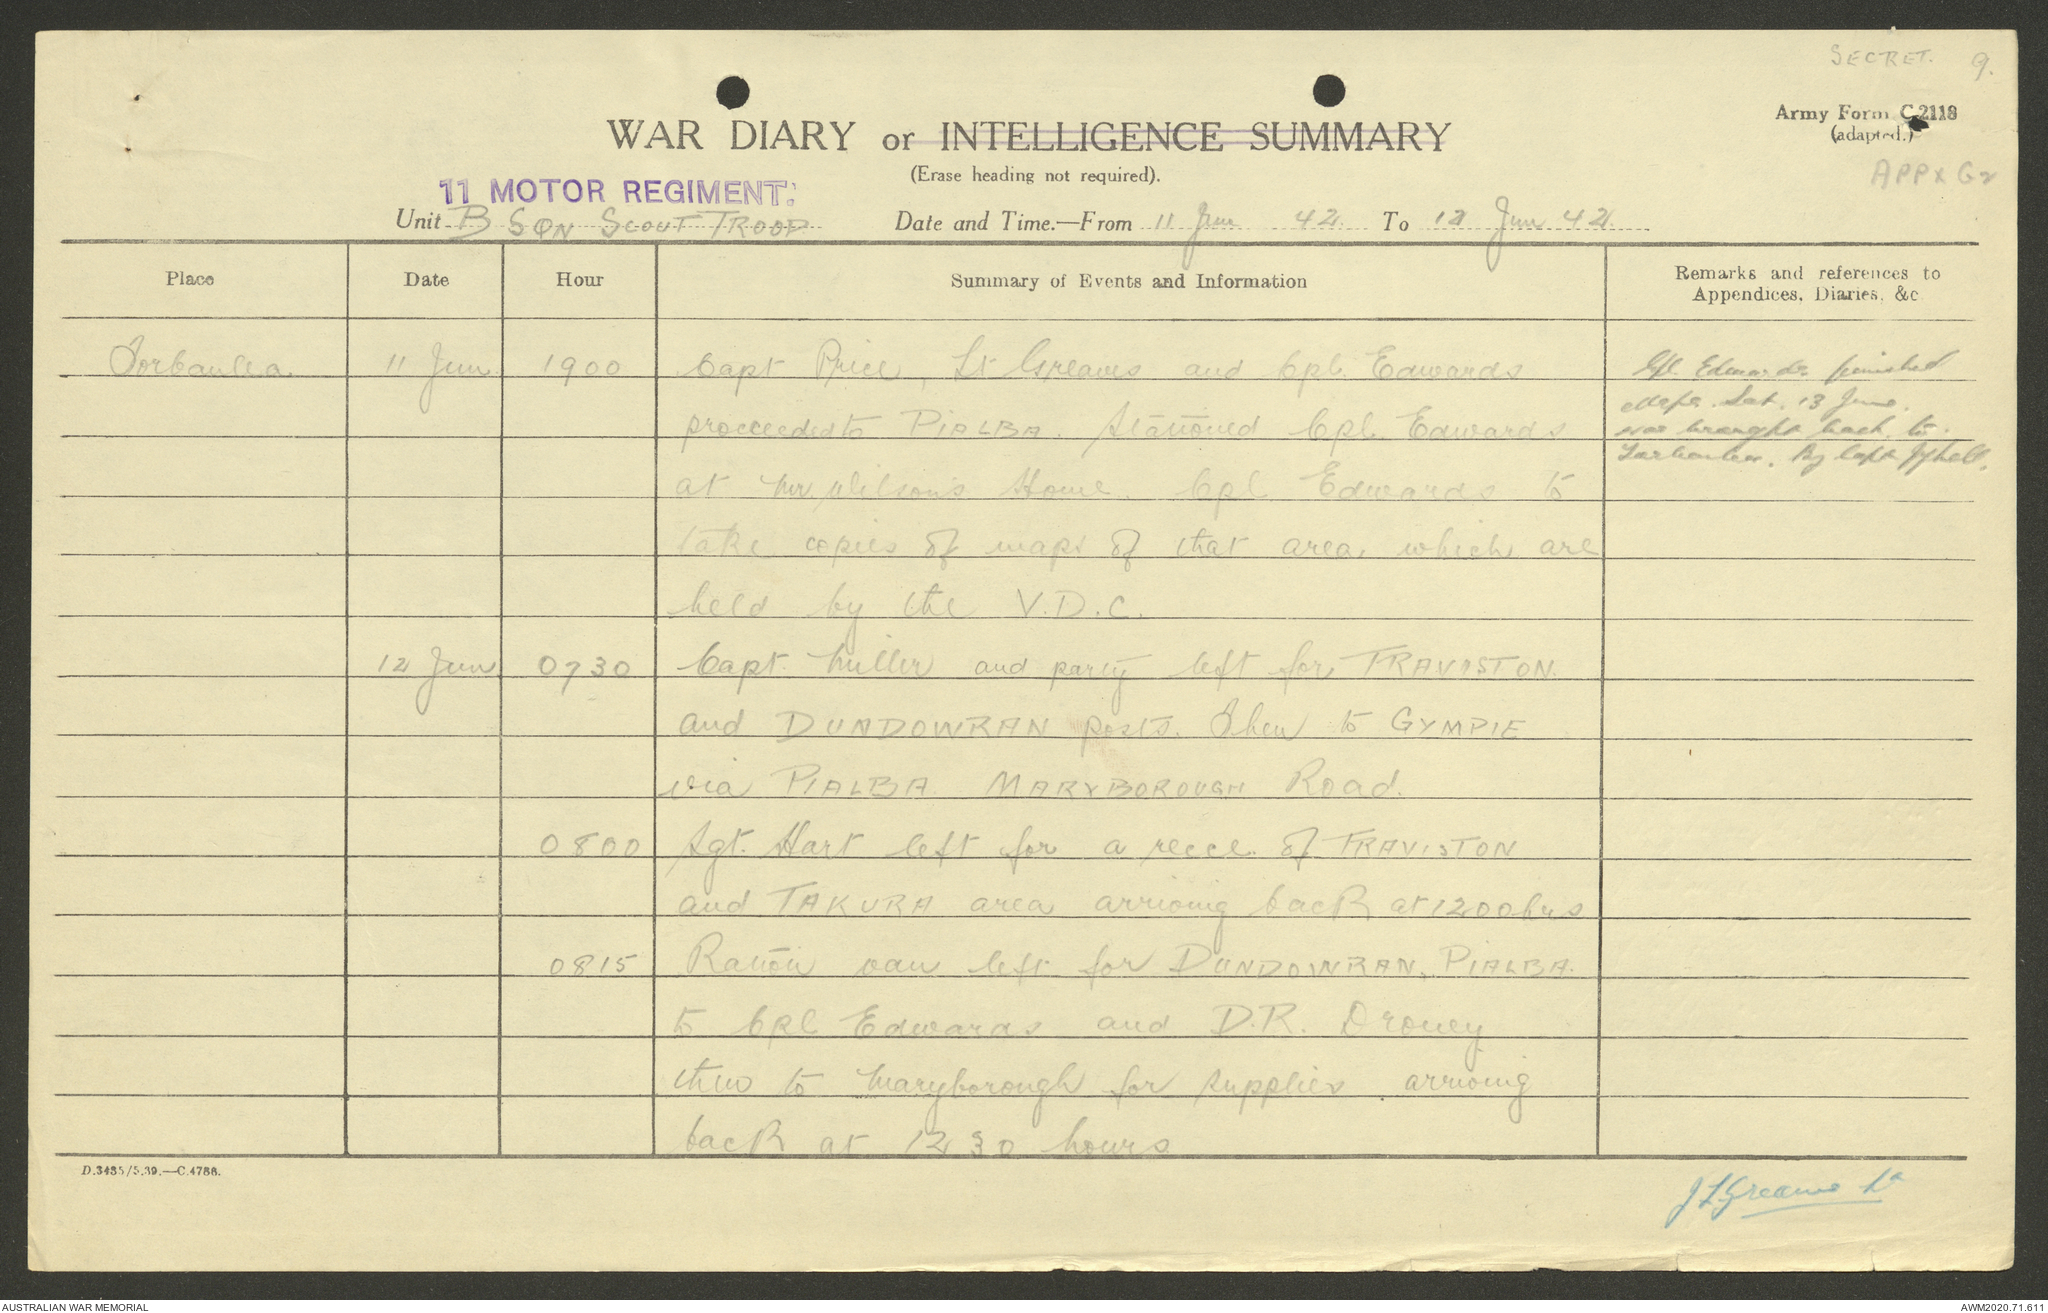 SECRET. 9.
Army Form C.2118
(adapted.)
WAR DIARY or INTELLIGENCE SUMMARY
(Erase heading not required).
APPX G2
11 MOTOR REGIMENT:
Unit B SQN SCOUT TROOP Date and Time.—From 11 Jun 42. To 12 Jun 42.
Place Date Hour Summary of Events and Information Remarks and references to
Appendices, Diaries, &c.
Torbanlea 11 Jun 1900 Capt Price, Lt Greaves and Cpl. Edwards
proceeded to PIALBA. Stationed Cpl. Edwards
at Mr. Wilson's Home. Cpl Edwards to
take copies of maps of that area, which are
held by the V.D.C.
Cpl Edwards finished
maps. Sat. 13 June.
was brought back to
Torbanlea. By Capt
12 Jun 0730 Capt. Miller and party left for TRAVISTON
and DUNDOWRAN posts. Then to GYMPIE
via PIALBA MARYBOROUGH Road.
0800 Sgt. Hart left for a recce. of TRAVISTON
and TAKURA area arriving back at 1200 hrs
0815 Ration van left for DUNDOWRAN, PIALBA.
to Cpl Edwards and D.R. Droney
then to Maryborough for supplies arriving
back at 1230 hours
D.3435/5.39.—C.4786.
J L Greaves Lt
AUSTRALIAN WAR MEMORIAL AWM2020.71.611